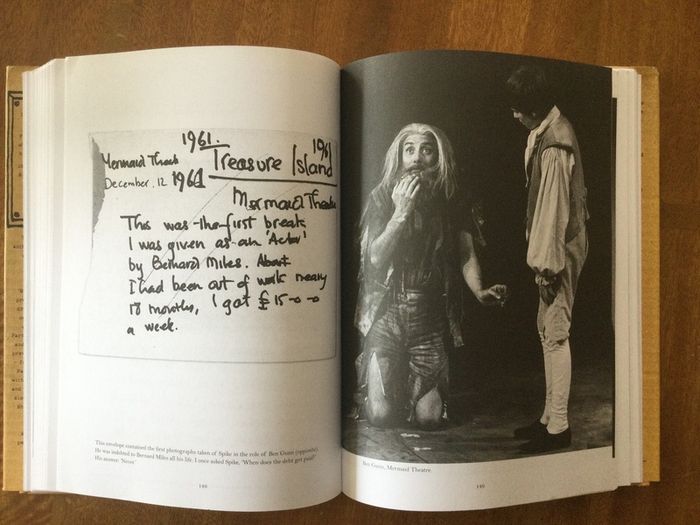 1961.
Mermaid Theat
December. 12 1961
1961
Treasure Island
Mermaid Theatre
This was the first break
I was given as an 'Actor'
by Bernard Miles. About
I had been out of work nearly
18 months, I got £15-0-0
a week.
This envelope contained the first photographs taken of Spike in the role of Ben Gunn (opposite).
He was indebted to Bernard Miles all his life. I once asked Spike, 'When does the debt get paid?'
His answer: 'Never'
148
Ben Gunn, Mermaid Theatre.
149